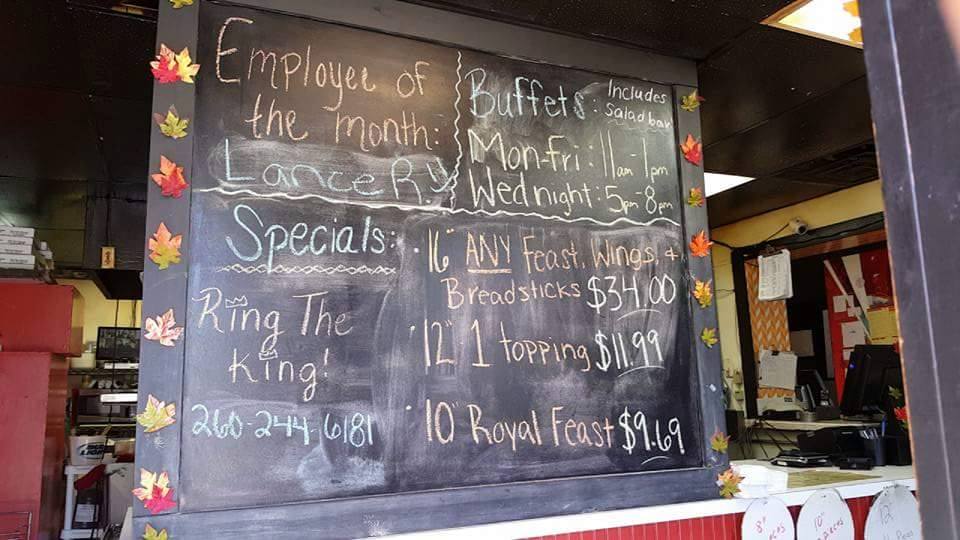 Employee of
the month:
Lance R.
Buffets: Includes
salad bar
Mon-Fri: 11am-1pm
Wed night: 5pm-8pm
Specials:
Ring The
King!
260-244-6181
· 16" ANY Feast, Wings, +
Breadsticks $34.00
· 12" 1 topping $11.99
· 10" Royal Feast $9.69
8"
10"
12"